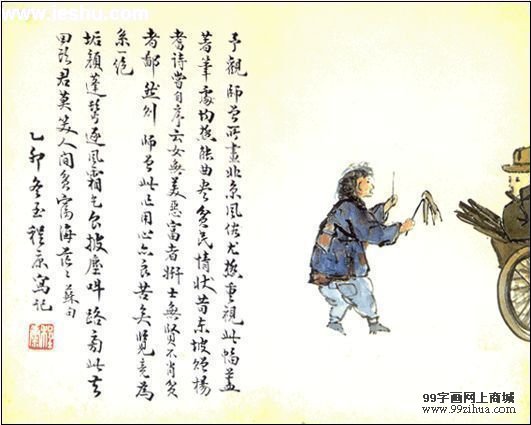 www.jeshu.com
予觀師曾所畫北京風俗尤極重視此幅蓋
著筆處均極能曲盡貧民情狀昔東坡贈楊
耆詩嘗自序云女無美惡富者妍士無賢不肖貧
者鄙然則師曾此作用心亦良苦矣覽竟為
系一絕
垢顏蓬鬢逐風霜乞食披塵叫路旁此去
回頭君莫笑人間貧富海茫々蘇句
乙卯冬至程康寫記
99字画网上商城
www.99zihua.com